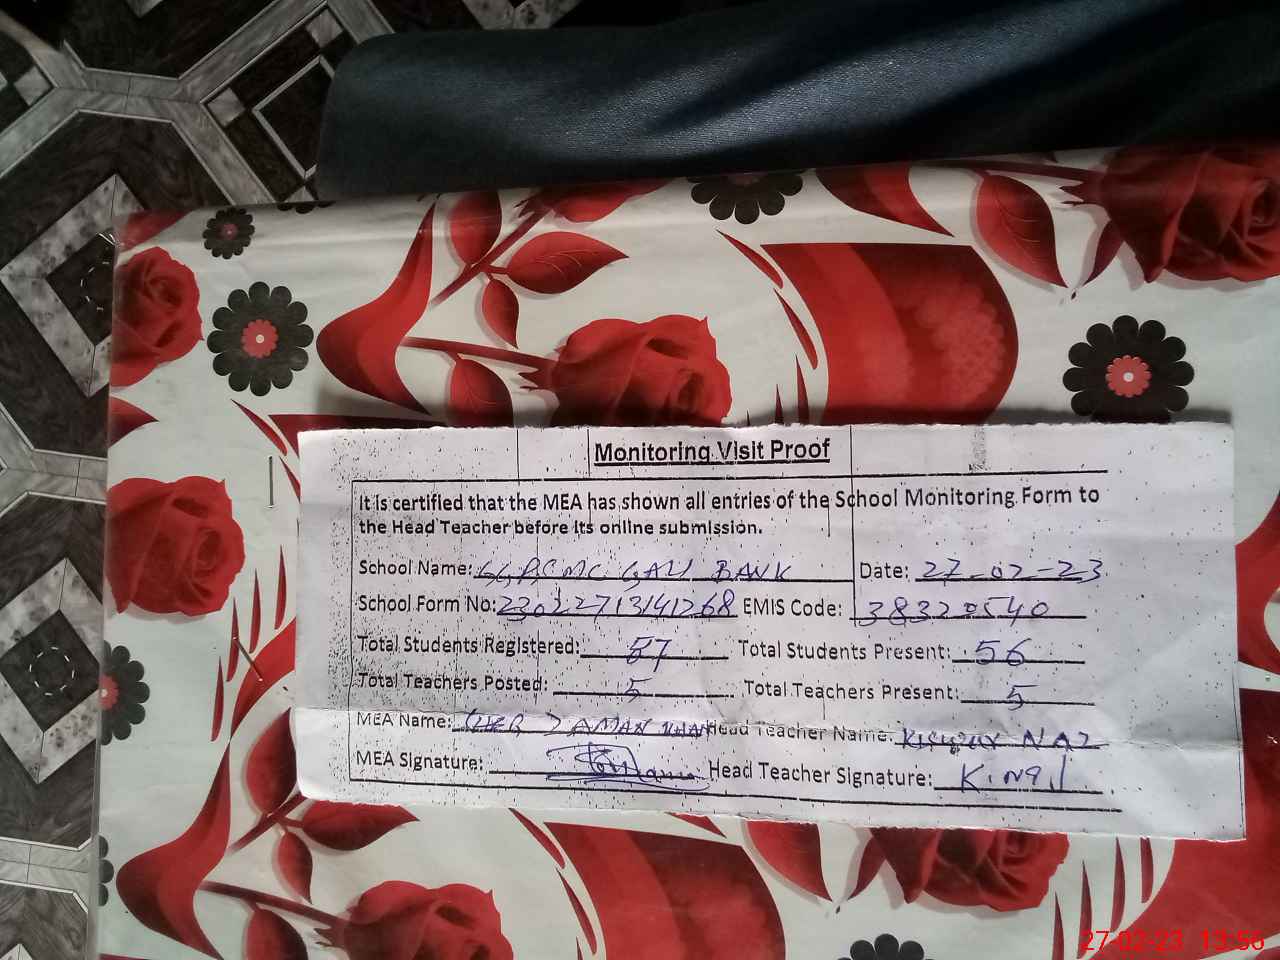 Monitoring Visit Proof
It is certified that the MEA has shown all entries of the School Monitoring Form to
the Head Teacher before its online submission.
School Name: GGPS MC GALI BANK Date: 27-02-23
School Form No: 23022713141268 EMIS Code: 38320540
Total Students Registered: 57 Total Students Present: 56
Total Teachers Posted: 5 Total Teachers Present: 5
MEA Name: AMAN KHAN Head Teacher Name: NAZ
MEA Signature: Head Teacher Signature:
27-02-23 13:56